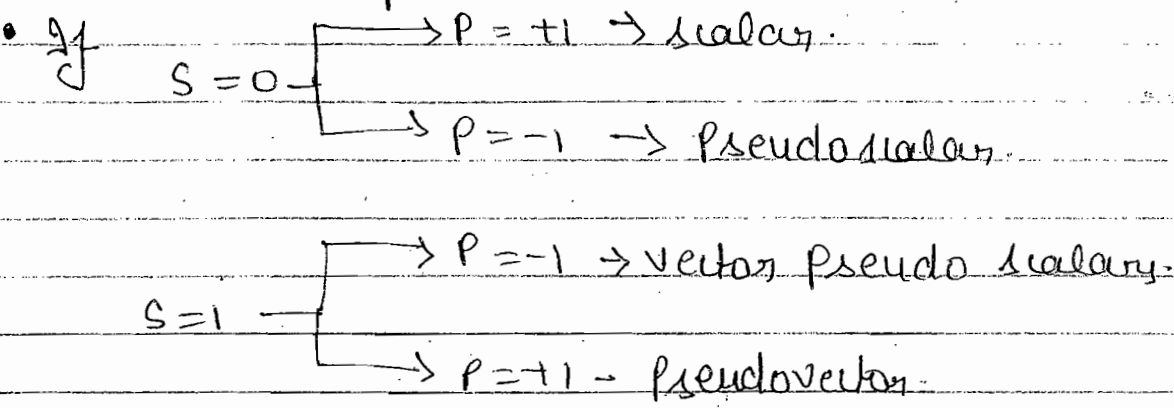 • If
→ P = +1 → scalar.
S = 0
→ P = -1 → Pseudoscalar.
→ P = -1 → vector pseudo scalar.
S = 1
→ P = +1 - Pseudovector.